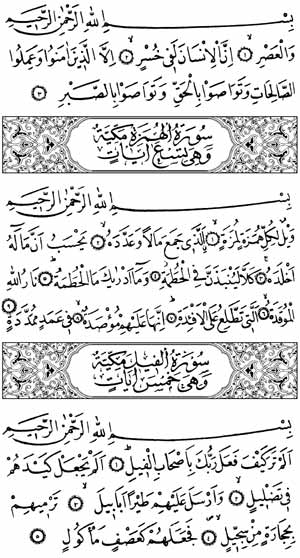 بِسْمِ اللهِ الرَّحْمٰنِ الرَّحِيمِ
وَالْعَصْرِ ﴿١﴾ اِنَّ الْاِنْسَانَ لَفِي خُسْرٍ ﴿٢﴾ اِلَّا الَّذِينَ اٰمَنُوا وَعَمِلُوا
الصَّالِحَاتِ وَتَوَاصَوْا بِالْحَقِّ وَتَوَاصَوْا بِالصَّبْرِ ﴿٣﴾
سُورَةُ الْهُمَزَةِ مَكِّيَّةٌ
وَهِيَ تِسْعُ اٰيَاتٍ
بِسْمِ اللهِ الرَّحْمٰنِ الرَّحِيمِ
وَيْلٌ لِكُلِّ هُمَزَةٍ لُمَزَةٍ ﴿١﴾ اَلَّذِي جَمَعَ مَالًا وَعَدَّدَهُ ﴿٢﴾ يَحْسَبُ اَنَّ مَالَهُ
اَخْلَدَهُ ﴿٣﴾ كَلَّا لَيُنْبَذَنَّ فِي الْحُطَمَةِ ﴿٤﴾ وَمَا اَدْرٰيكَ مَا الْحُطَمَةُ ﴿٥﴾ نَارُ اللهِ
الْمُوقَدَةُ ﴿٦﴾ اَلَّتِي تَطَّلِعُ عَلَى الْاَفْئِدَةِ ﴿٧﴾ اِنَّهَا عَلَيْهِمْ مُؤْصَدَةٌ ﴿٨﴾ فِي عَمَدٍ مُمَدَّدَةٍ ﴿٩﴾
سُورَةُ الْفِيلِ مَكِّيَّةٌ
وَهِيَ خَمْسُ اٰيَاتٍ
بِسْمِ اللهِ الرَّحْمٰنِ الرَّحِيمِ
اَلَمْ تَرَ كَيْفَ فَعَلَ رَبُّكَ بِاَصْحَابِ الْفِيلِ ﴿١﴾ اَلَمْ يَجْعَلْ كَيْدَهُمْ
فِي تَضْلِيلٍ ﴿٢﴾ وَاَرْسَلَ عَلَيْهِمْ طَيْرًا اَبَابِيلَ ﴿٣﴾ تَرْمِيهِمْ
بِحِجَارَةٍ مِنْ سِجِّيلٍ ﴿٤﴾ فَجَعَلَهُمْ كَعَصْفٍ مَأْكُولٍ ﴿٥﴾